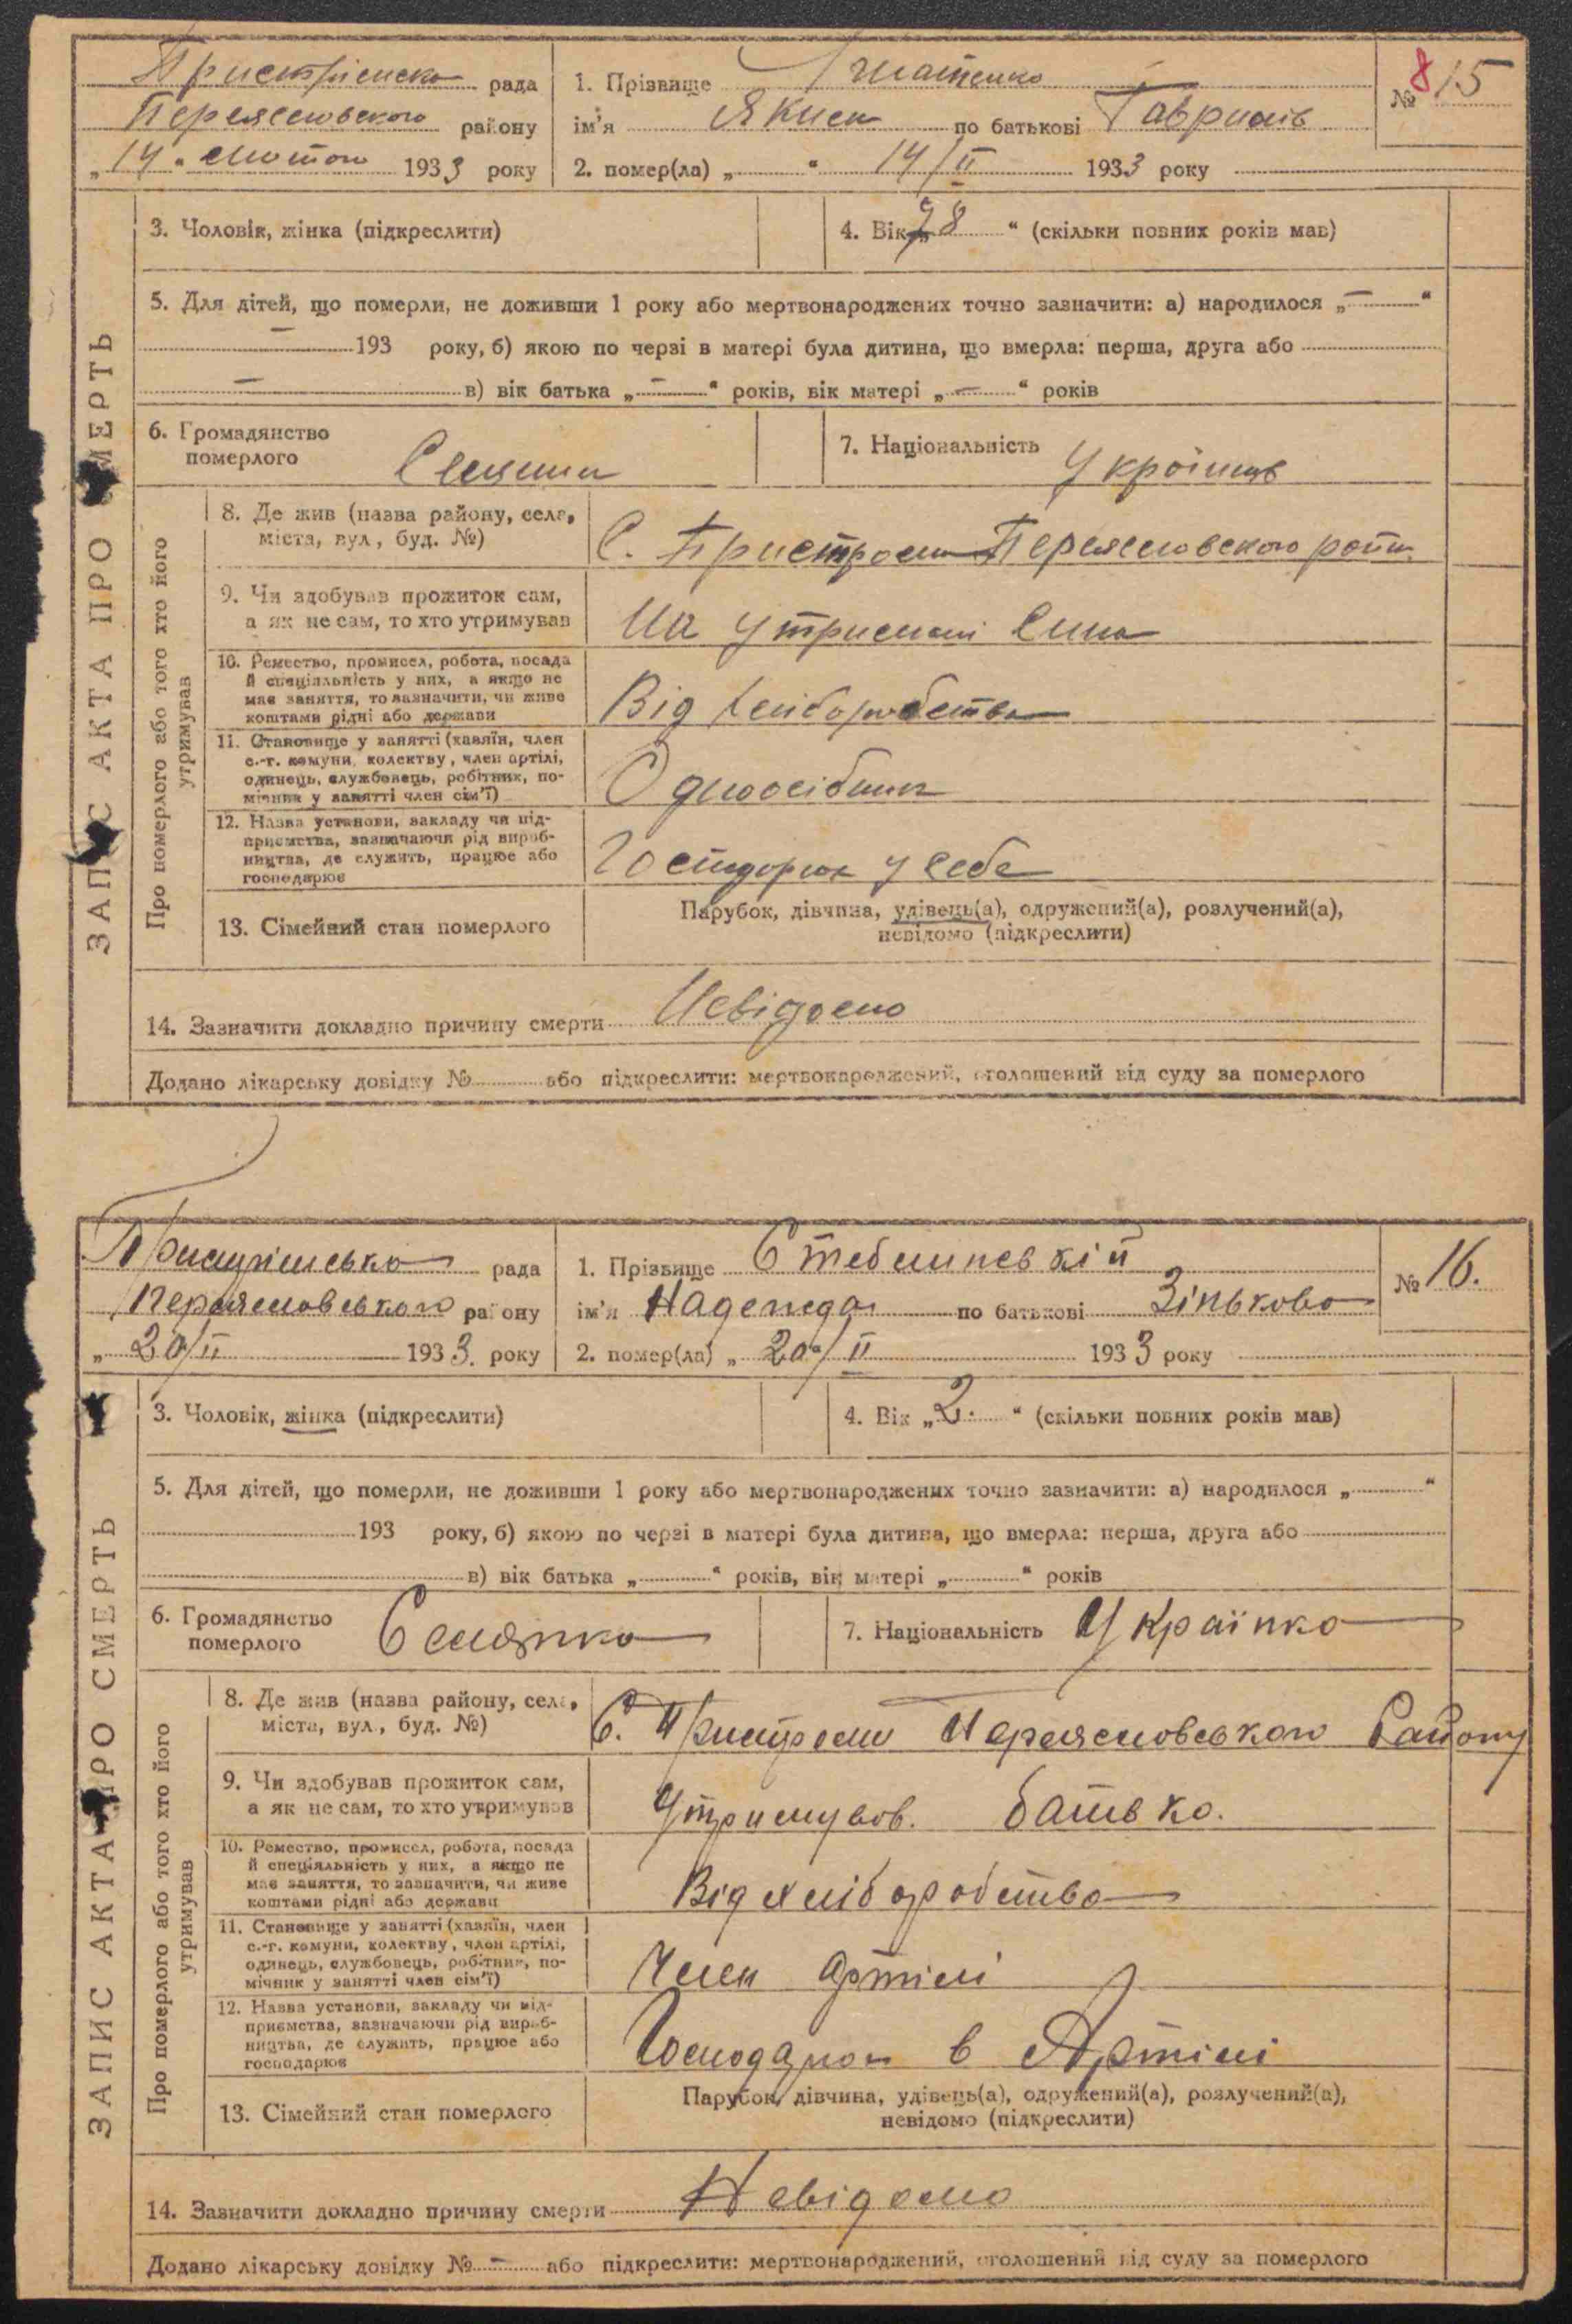 Пристрімська рада
Переяславського району
„14" лютого 1933 року
1. Прізвище Гнатенко
ім'я Яким по батькові Гаврилів
№ 8 15
2. помер(ла) „ " 14/II 1933 року
3. Чоловік, жінка (підкреслити)
4. Вік „78" (скільки повних років мав)
5. Для дітей, що померли, не доживши 1 року або мертвонароджених точно зазначити: а) народилося „—"
— 193 року, б) якою по черзі в матері була дитина, що вмерла: перша, друга або
— в) вік батька „—" років, вік матері „—" років
6. Громадянство
померлого
7. Національність Українць
8. Де жив (назва району, села,
міста, вул., буд. №)
С. Пристроми Переясловського район
9. Чи здобував прожиток сам,
а як не сам, то хто утримував
На утримані Сина
10. Ремество, промисел, робота, посада
й спеціяльність у них, а якщо не
має заняття, то зазначити, чи живе
коштами рідні або держави
Від хліборобства
11. Становище у занятті (хазяїн, член
с.-г. комуни, колектву, член артілі,
одинець, службовець, робітник, по-
мічник у занятті член сім'ї)
Одноосібник
12. Назва установи, закладу чи під-
приємства, зазначаючи рід вироб-
ництва, де служить, працює або
господарює
Господарює у себе
13. Сімейний стан померлого
Парубок, дівчина, удівець(а), одружений(а), розлучений(а),
невідомо (підкреслити)
14. Зазначити докладно причину смерти Невідомо
Додано лікарську довідку № або підкреслити: мертвонароджений, оголошений від суду за померлого
ЗАПИС АКТА ПРО СМЕРТЬ
Про померлого або того хто його
утримував
Пристрімська рада
Переясловського району
„20/II 1933. року
1. Прізвище Стеблиневкій
ім'я Надежда по батькові Зінькова
№ 16.
2. помер(ла) „20"/II 1933 року
3. Чоловік, жінка (підкреслити)
4. Вік „2." (скільки повних років мав)
5. Для дітей, що померли, не доживши 1 року або мертвонароджених точно зазначити: а) народилося „ "
193 року, б) якою по черзі в матері була дитина, що вмерла: перша, друга або
в) вік батька „ " років, вік матері „ " років
6. Громадянство
померлого
Селянка
7. Національність Українка
8. Де жив (назва району, села,
міста, вул., буд. №)
С. Пристроми Переясловського Району
9. Чи здобував прожиток сам,
а як не сам, то хто утримував
Утримував. батько.
10. Ремество, промисел, робота, посада
й спеціяльність у них, а якщо не
має заняття, то зазначити, чи живе
коштами рідні або держави
Від хліборобства
11. Становище у занятті (хазяїн, член
с.-г. комуни, колектву, член артілі,
одинець, службовець, робітник, по-
мічник у занятті член сім'ї)
Член артілі
12. Назва установи, закладу чи під-
приємства, зазначаючи рід вироб-
ництва, де служить, працює або
господарює
Господарює в Артілі
13. Сімейний стан померлого
Парубок, дівчина, удівець(а), одружений(а), розлучений(а),
невідомо (підкреслити)
14. Зазначити докладно причину смерти Невідомо
Додано лікарську довідку № — або підкреслити: мертвонароджений, оголошений від суду за померлого
ЗАПИС АКТА ПРО СМЕРТЬ
Про померлого або того хто його
утримував